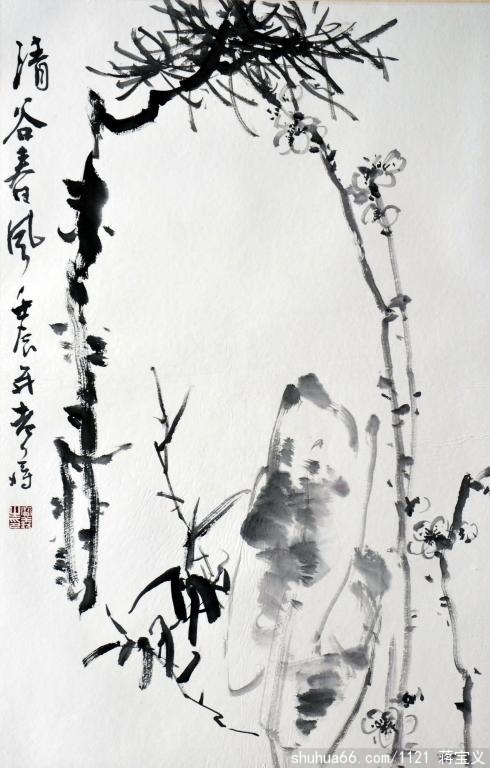 清谷春风
壬辰
shuhua66.com/1121 蒋宝义